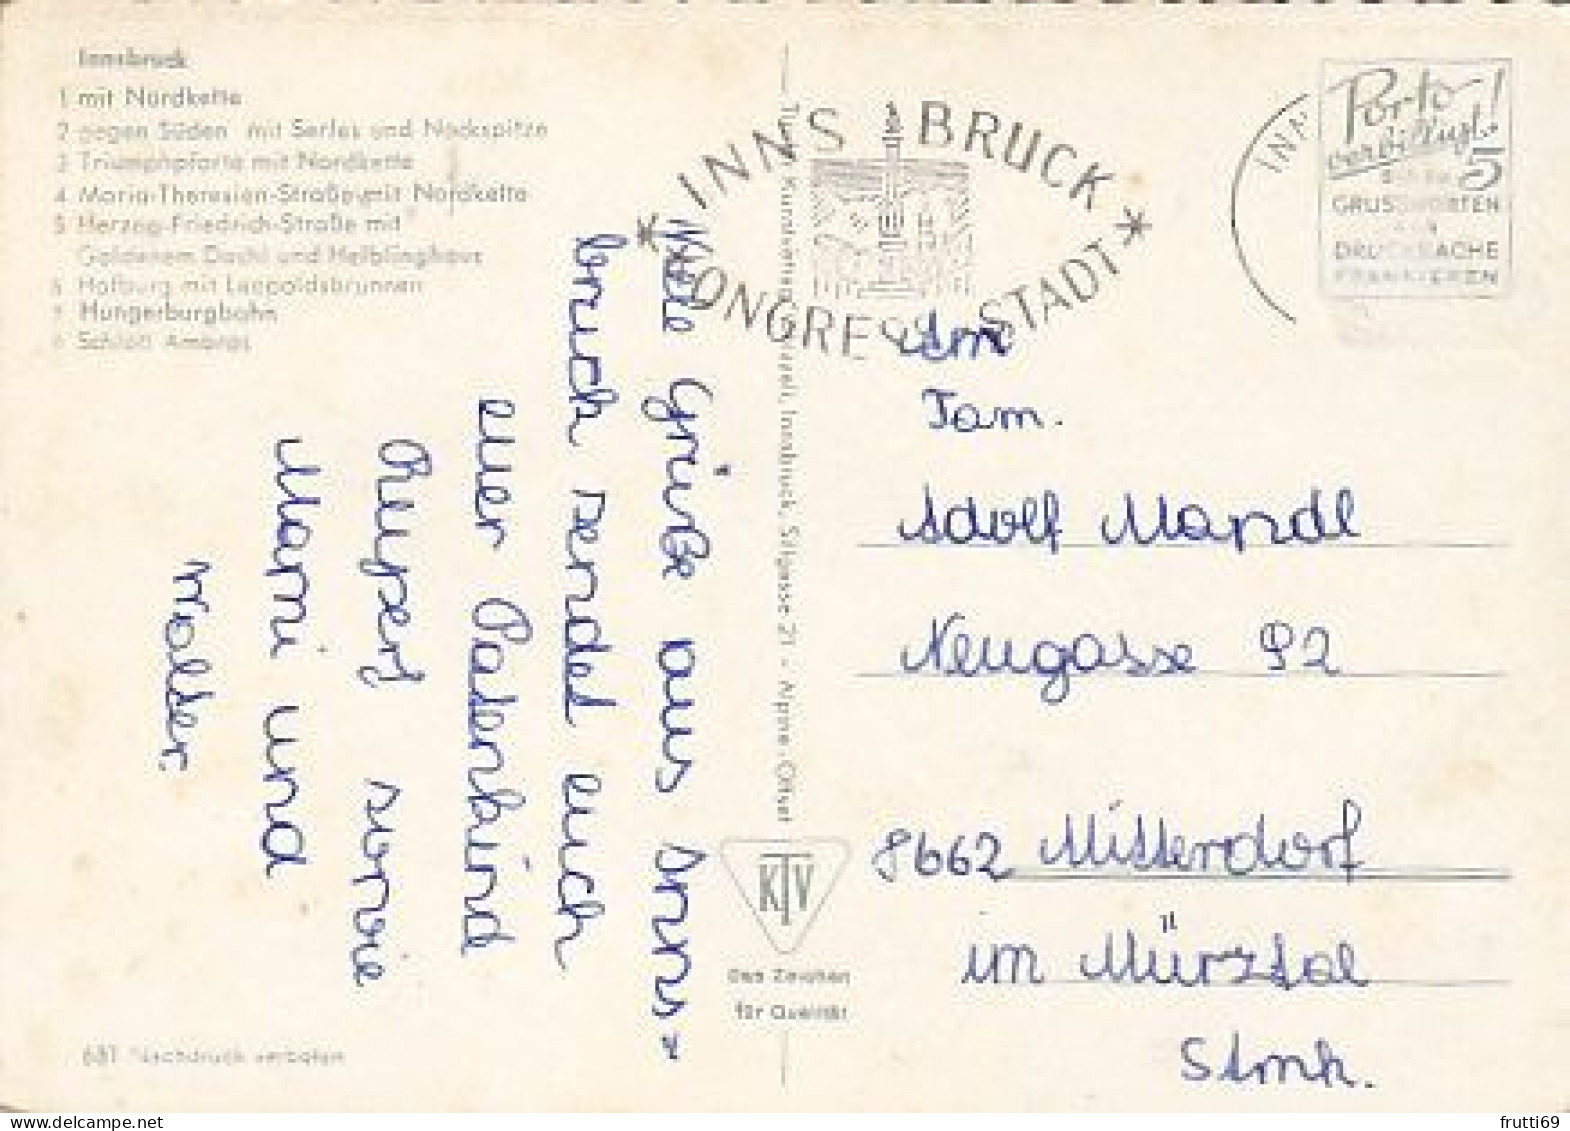 Innsbruck
1 mit Nordkette
2 gegen Süden mit Serles und Nockspitze
3 Triumphpforte mit Nordkette
4 Maria-Theresien-Straße mit Nordkette
5 Herzog-Friedrich-Straße mit
Goldenem Dachl und Helblinghaus
6 Hofburg mit Leopoldsbrunnen
7 Hungerburgbahn
8 Schloß Ambras
INNSBRUCK
KONGRESSSTADT
INN
Porto
verbilligt!
5
GRUSSKARTEN
ALS
DRUCKSACHE
FRANKIEREN
Viele Grüße aus Inns-
bruck sendet euch
euer Patenkind
Rupert sowie
Mami und
Walter.
Tiroler Kunstverlag Chizzali, Innsbruck, Sillgasse 21 - Alpine-Offset
An
Fam.
Adolf Mandl
Neugasse 92
8662 Mitterdorf
im Mürztal
Stmk.
KTV
Das Zeichen
für Qualität
681 Nachdruck verboten
frutti69